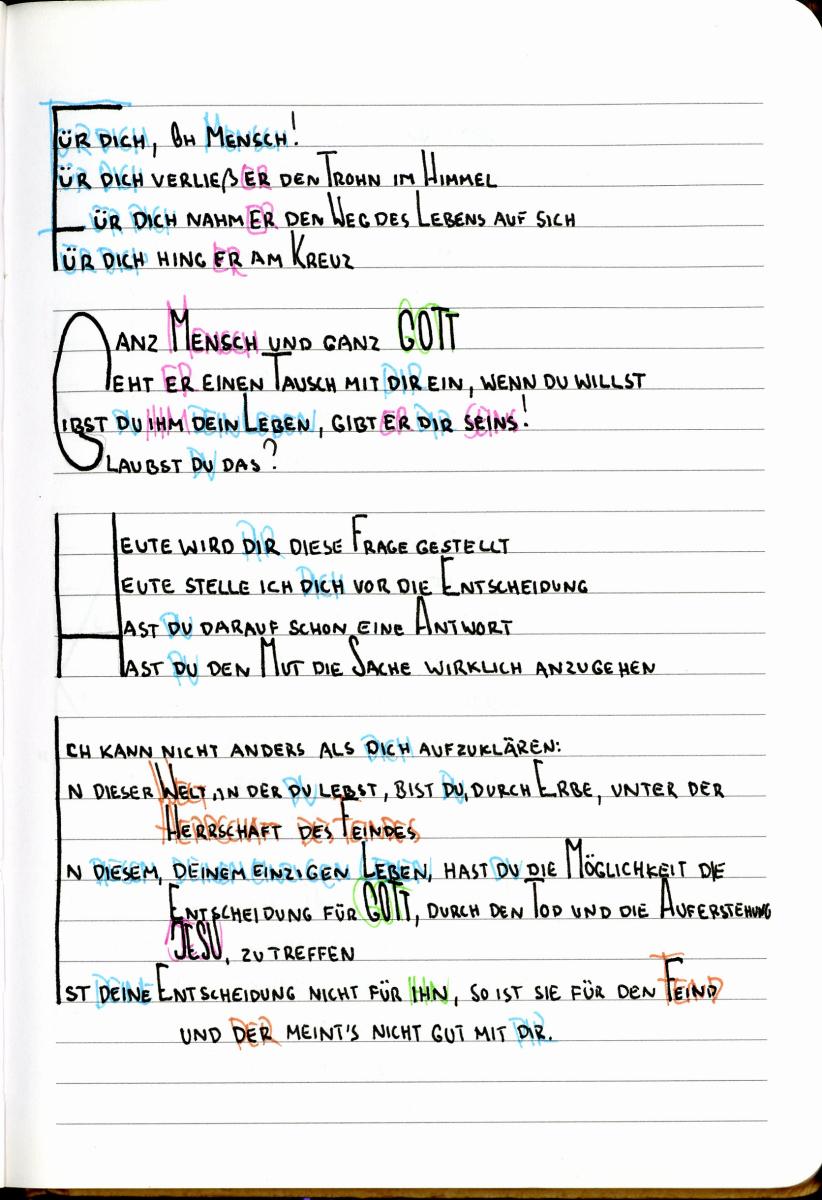 FÜR DICH, OH MENSCH!
FÜR DICH VERLIEß ER DEN TROHN IM HIMMEL
FÜR DICH NAHM ER DEN WEG DES LEBENS AUF SICH
FÜR DICH HING ER AM KREUZ
GANZ MENSCH UND GANZ GOTT
GEHT ER EINEN TAUSCH MIT DIR EIN, WENN DU WILLST
GIBST DU IHM DEIN LEBEN, GIBT ER DIR SEINS!
GLAUBST DU DAS?
HEUTE WIRD DIR DIESE FRAGE GESTELLT
HEUTE STELLE ICH DICH VOR DIE ENTSCHEIDUNG
HAST DU DARAUF SCHON EINE ANTWORT
HAST DU DEN MUT DIE SACHE WIRKLICH ANZUGEHEN
ICH KANN NICHT ANDERS ALS DICH AUFZUKLÄREN:
IN DIESER WELT, IN DER DU LEBST, BIST DU, DURCH ERBE, UNTER DER
HERRSCHAFT DES FEINDES
IN DIESEM, DEINEM EINZIGEN LEBEN, HAST DU DIE MÖGLICHKEIT DIE
ENTSCHEIDUNG FÜR GOTT, DURCH DEN TOD UND DIE AUFERSTEHUNG
JESU, ZU TREFFEN
IST DEINE ENTSCHEIDUNG NICHT FÜR IHN, SO IST SIE FÜR DEN FEIND
UND DER MEINT'S NICHT GUT MIT DIR.